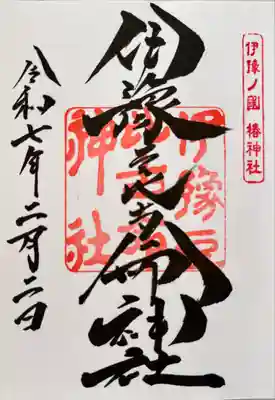 伊豫ノ國 椿神社
伊豫豆比古命神社
伊豫豆
比古命
神社
令和七年二月二日